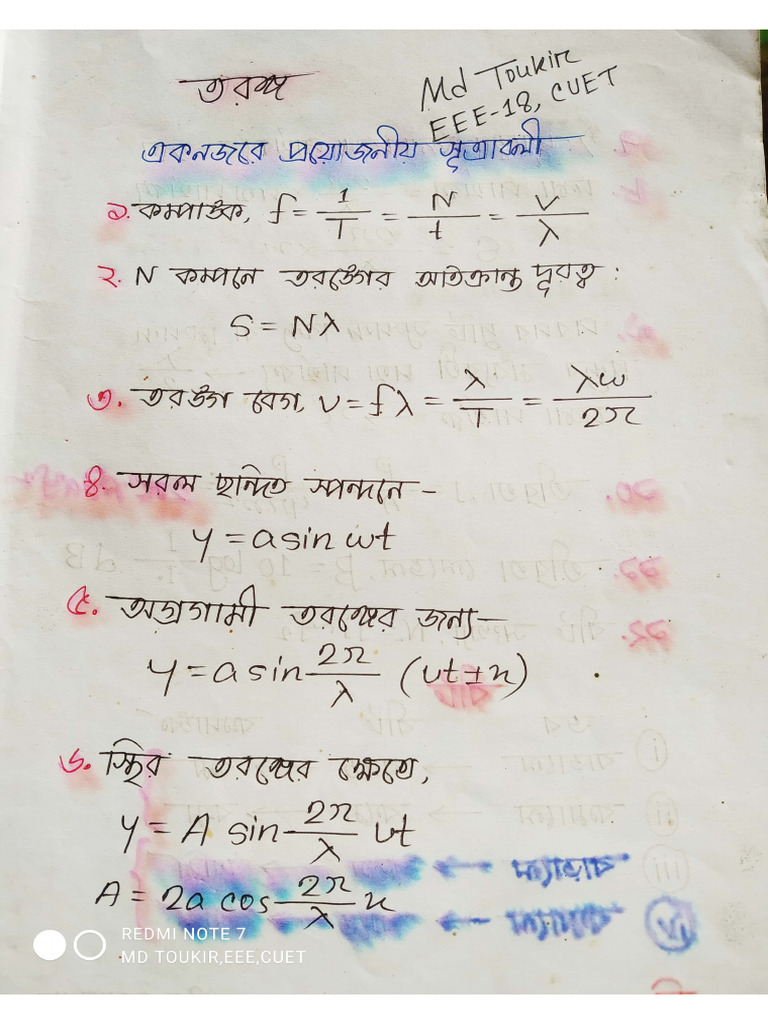 তরঙ্গ
Md Toukir
EEE-18, CUET
একনজরে প্রয়োজনীয় সূত্রাবলী
১. কম্পাঙ্ক, f = 1/T = N/t = v/λ
২. N কম্পনে তরঙ্গের অতিক্রান্ত দূরত্ব :
S = Nλ
৩. তরঙ্গ বেগ, v = fλ = λ/T = λω/2π
৪. সরল ছন্দিত স্পন্দনে -
y = a sin ωt
৫. অগ্রগামী তরঙ্গের জন্য -
y = a sin 2π/λ (vt ± x)
৬. স্থির তরঙ্গের ক্ষেত্রে,
y = A sin 2π/λ vt
A = 2a cos 2π/λ x
REDMI NOTE 7
MD TOUKIR,EEE,CUET